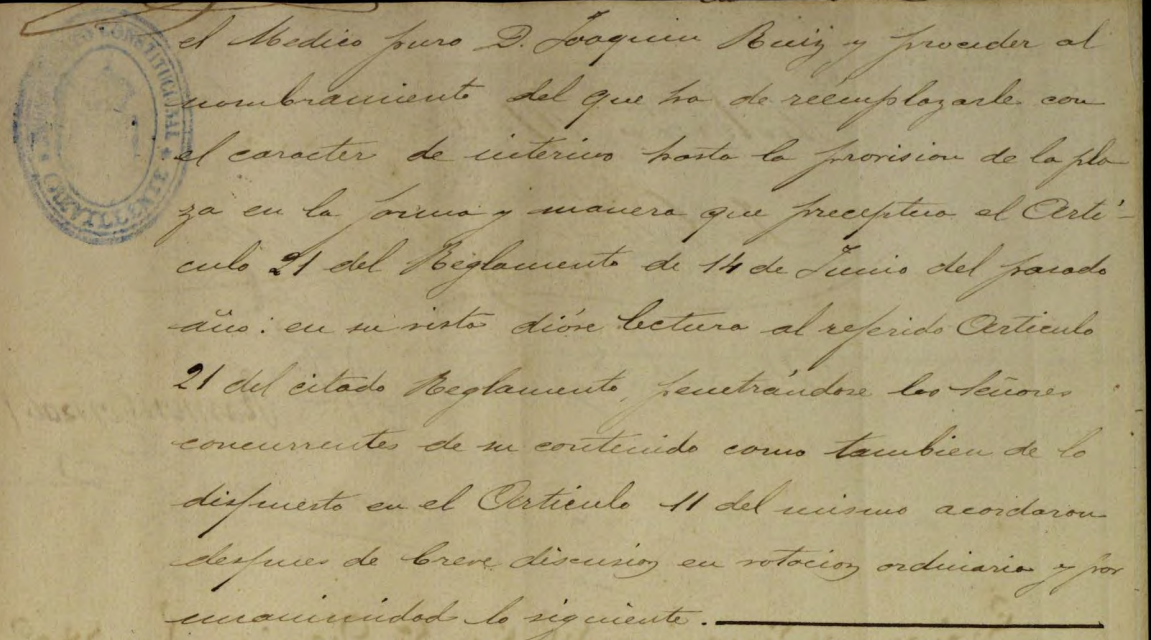 AYUNTAMIENTO CONSTITUCIONAL
* CREVILLENTE *
el Medico puro D. Joaquin Ruiz y proceder al
nombramiento del que ha de reemplazarle con
el caracter de interino hasta la provision de la pla
za en la forma y manera que preceptua el Arti-
culo 21 del Reglamento de 14 de Junio del pasado
año: en su vista dióse lectura al referido Articulo
21 del citado Reglamento, penetrándose los Señores
concurrentes de su contenido como tambien de lo
dispuesto en el Articulo 11 del mismo acordaron
despues de breve discusion en votacion ordinaria y por
unanimidad lo siguiente.